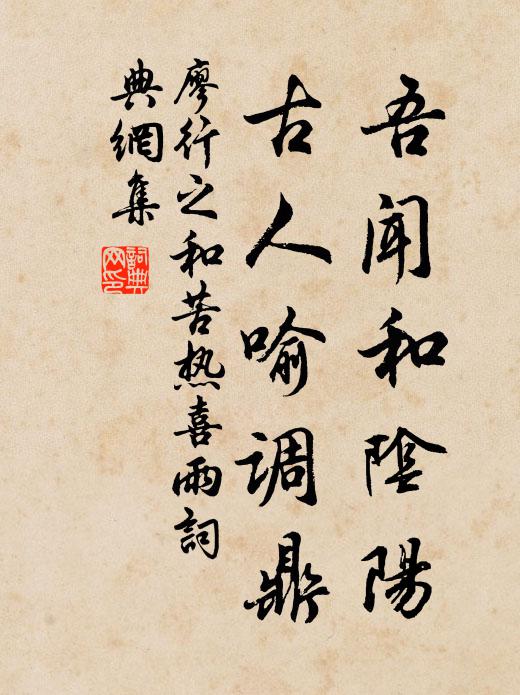 吾闻和陰陽
古人喻调鼎
廖行之和苦热喜雨詞
典網集
詞典网印